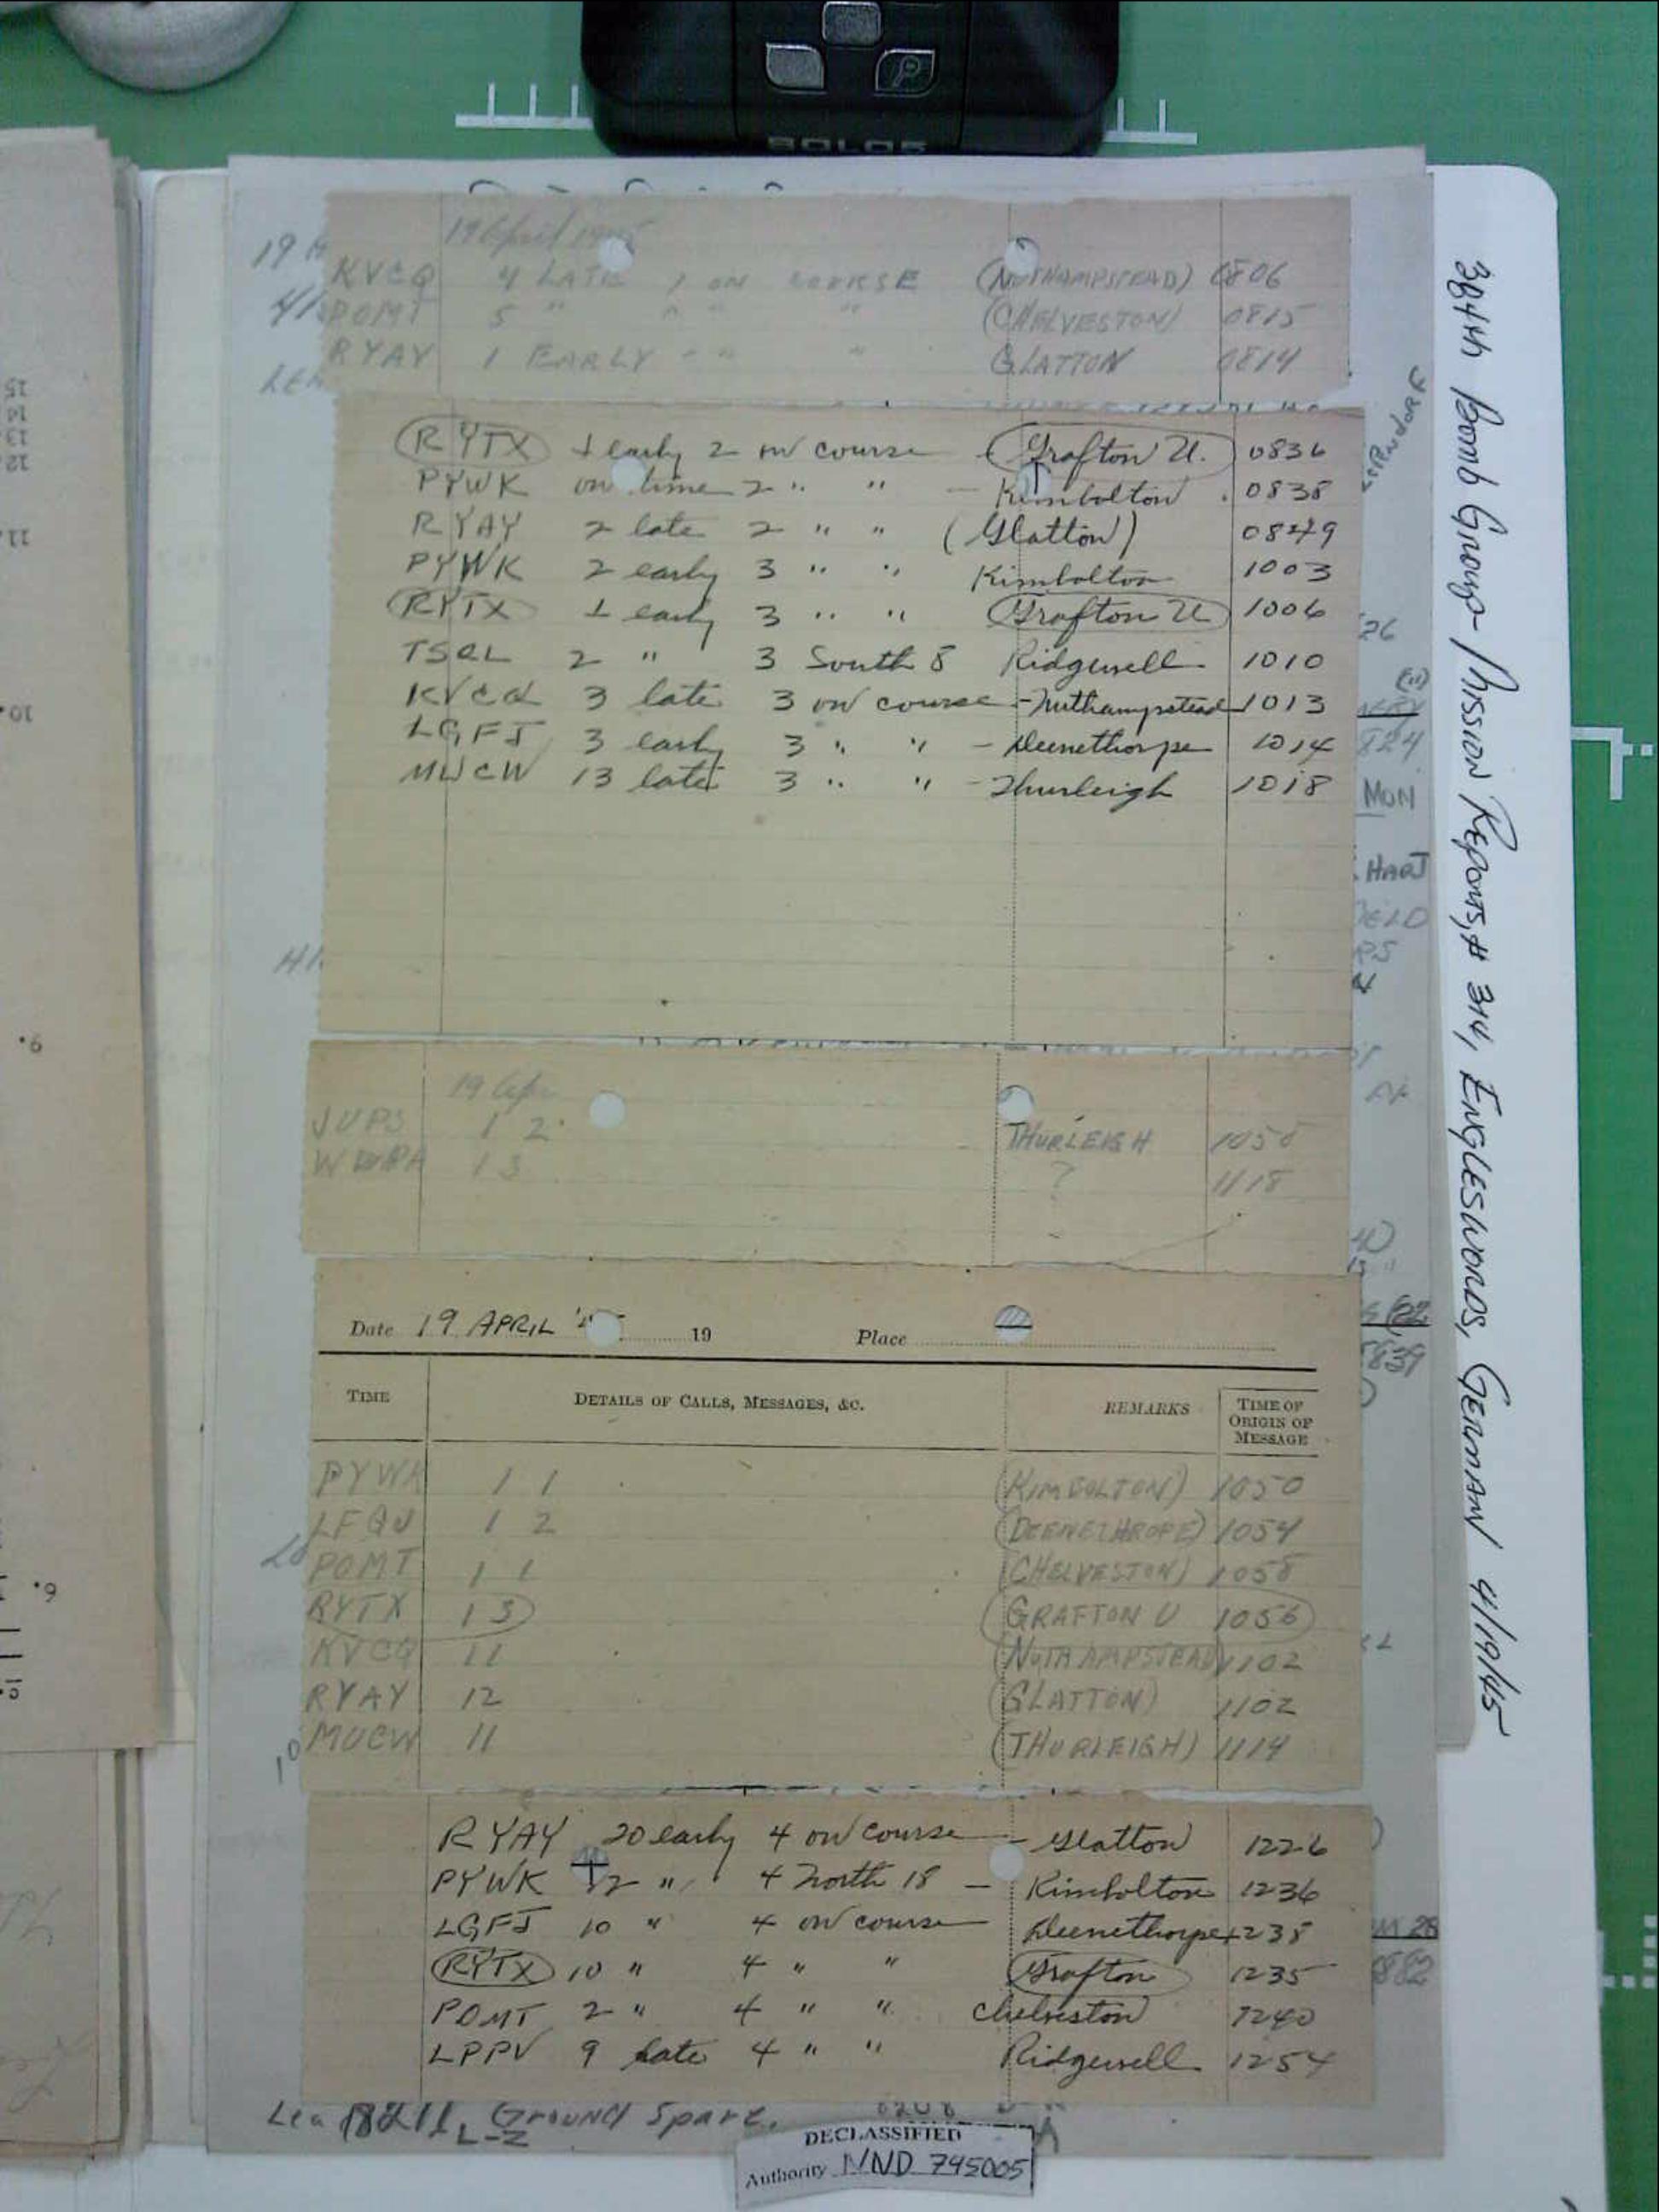 SOLOS
19 April 1945
KVCQ 4 LATE 1 ON COURSE (NUTHAMPSTEAD) 0806
POMT 5 " " " " (CHELVESTON) 0815
RYAY 1 EARLY " " " GLATTON 0814
RYTX 1 early 2 on course - Grafton U. 0836
PYWK on time 2 " " - Kimbolton . 0838
RYAY 2 late 2 " " (Glatton) 0849
PYWK 2 early 3 " " Kimbolton 1003
RYTX 1 early 3 " " Grafton U 1006
TSQL 2 " 3 South 8 Ridgewell 1010
KVCQ 3 late 3 on course - Nuthampstead 1013
LGFJ 3 early 3 " " - Deenethorpe 1014
MUCW 13 late 3 " " - Thurleigh 1018
19 Apr
JUPS 1 2 THURLEIGH 1058
1 3 ? 1118
Date 19 APRIL '4 19 Place
TIME DETAILS OF CALLS, MESSAGES, &C. REMARKS TIME OF ORIGIN OF MESSAGE
PYWK 1 1 (KIMBOLTON) 1050
LFQU 1 2 (DEENETHROPE) 1054
POMT 1 1 (CHELVESTON) 1058
RYTX 1 3 GRAFTON U 1056
KVCQ 11 (NUTHAMPSTEAD) 1102
RYAY 12 (GLATTON) 1102
MUCW 11 (THURLEIGH) 1114
RYAY 20 early 4 on course - Glatton 1226
PYWK 12 " 4 North 18 - Kimbolton 1236
LGFJ 10 " 4 on course - Deenethorpe 1238
RYTX 10 " 4 " " Grafton 1235
POMT 2 " 4 " " Chelveston 1240
LPPV 9 late 4 " " Ridgewell 1254
Ground Spare.
L-Z
DECLASSIFIED
Authority NND 745005
384th Bomb Group Mission Reports, # 314, Engleswords, Germany 4/19/45
26
824
MON
HART
839
882
15
14
13
12
11.
10.
9.